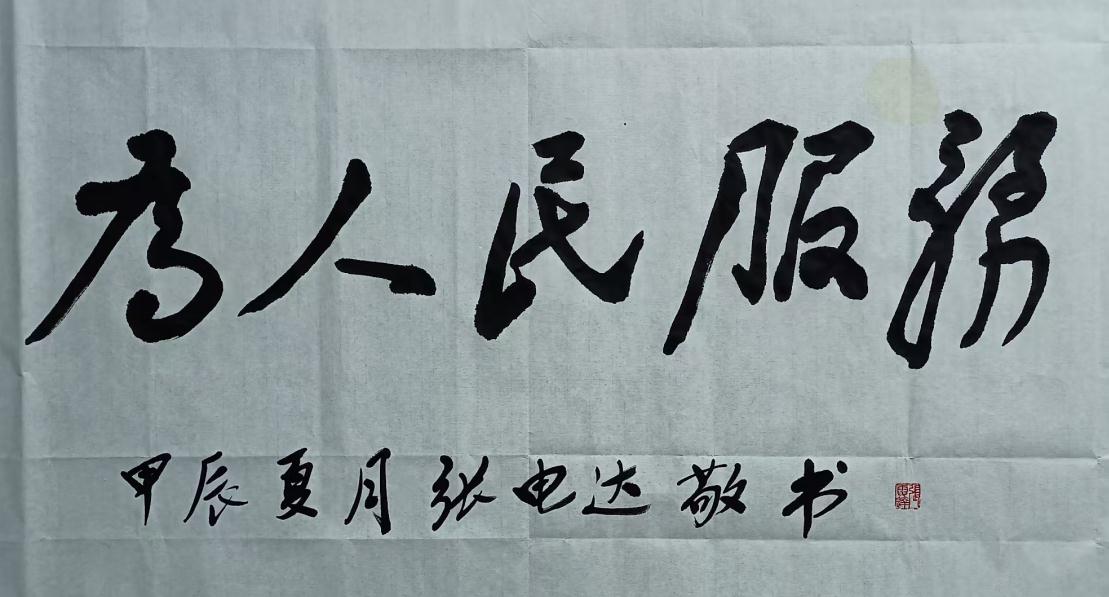 为人民服務
甲辰夏月张电达敬书